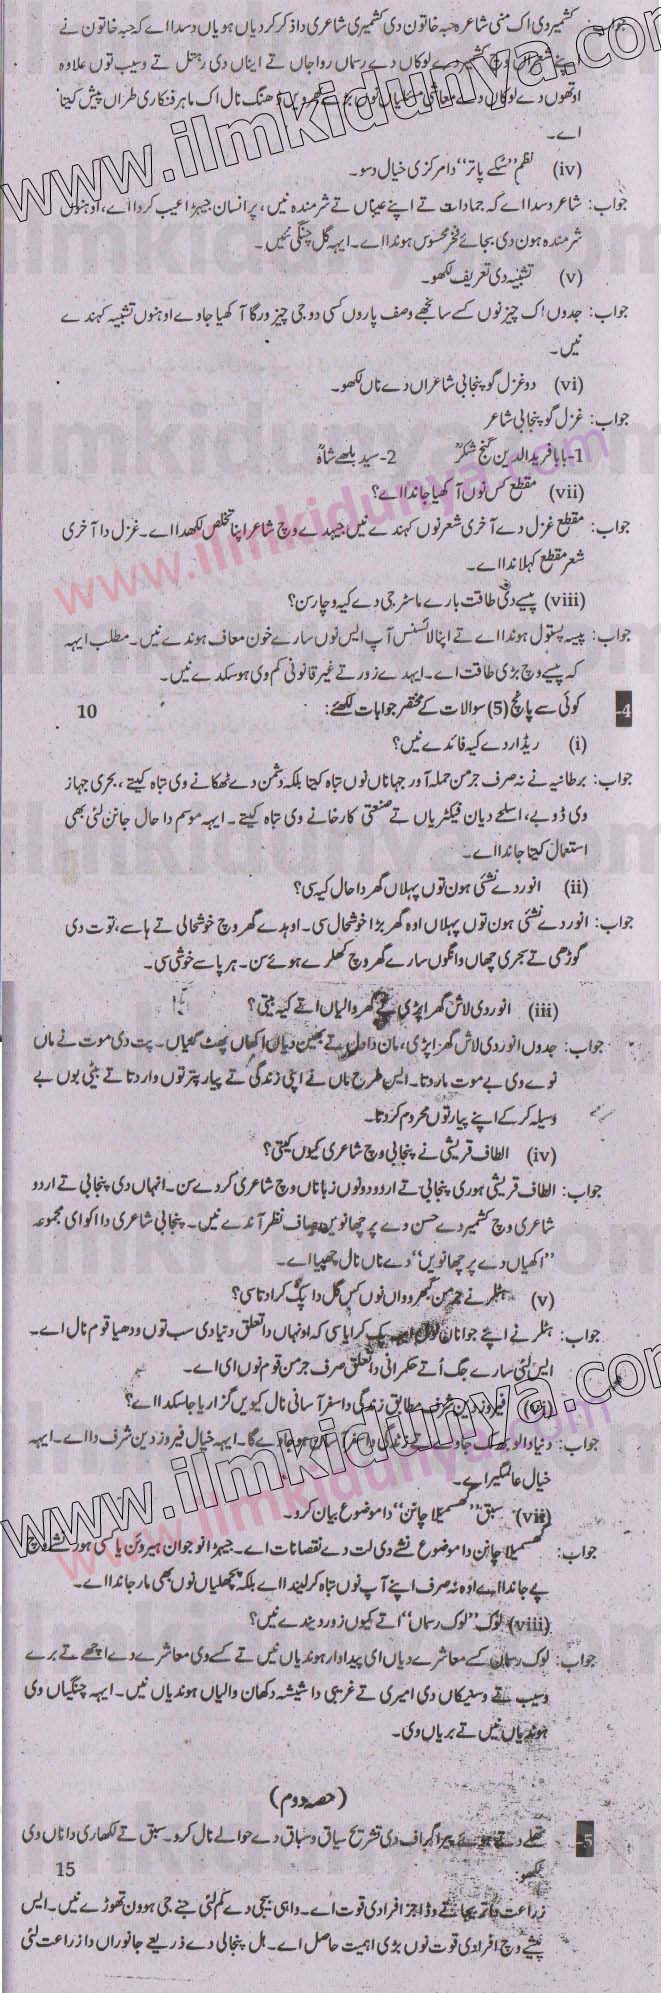 جواب: کشمیر دی اک منی شاعرہ حبہ خاتون دی کشمیری شاعری دا ذکر کردیاں ہویاں دسدا اے کہ حبہ خاتون نے
اپنے شعراں وچ کشمیر دے لوکاں دے رسماں رواجاں تے ایناں دی رہتل تے وسیب توں علاوہ
اوتھوں دے لوکاں دے معاشی مسئلیاں نوں بڑے بھرویں ڈھنگ نال اک ماہر فنکاری طراں پیش کیتا
اے۔
(iv) نظم ”سُکے پاتر“ دا مرکزی خیال دسو۔
جواب: شاعر دسدا اے کہ جمادات تے اپنے عیباں تے شرمندہ نیں، پر انسان جیہڑا عیب کردا اے، اوہنوں
شرمندہ ہون دی بجائے فخر محسوس ہوندا اے۔ ایہہ گل چنگی نہیں۔
(v) تشبیہ دی تعریف لکھو۔
جواب: جدوں اک چیز نوں کسے سانجھے وصف پاروں کسی دوجی چیز ورگا آکھیا جاوے اوہنوں تشبیہ کہندے
نیں۔
(vi) دو غزل گو پنجابی شاعراں دے ناں لکھو۔
جواب: غزل گو پنجابی شاعر
1- بابا فرید الدین گنج شکرؒ 2- سید بلھے شاہؒ
(vii) مقطع کس نوں آکھیا جاندا اے؟
جواب: مقطع غزل دے آخری شعر نوں کہندے نیں جیہدے وچ شاعر اپنا تخلص لکھدا اے۔ غزل دا آخری
شعر مقطع کہلاندا اے۔
(viii) پیسے دی طاقت بارے ماسٹر جی دے کیہ وچار سن؟
جواب: پیسہ پستول ہوندا اے تے اپنا لائسنس آپ ایس نوں سارے خون معاف ہوندے نیں۔ مطلب ایہہ
کہ پیسے وچ بڑی طاقت اے۔ ایہدے زور تے غیر قانونی کم وی ہو سکدے نیں۔
4- کوئی سے پانچ (5) سوالات کے مختصر جوابات لکھئے: 10
(i) ریڈار دے کیہ فائدے نیں؟
جواب: برطانیہ نے نہ صرف جرمن حملہ آور جہازاں نوں تباہ کیتا بلکہ دشمن دے ٹھکانے وی تباہ کیتے، بحری جہاز
وی ڈوبے، اسلحے دیاں فیکٹریاں تے صنعتی کارخانے وی تباہ کیتے۔ ایہہ موسم دا حال جانن لئی بھی
استعمال کیتا جاندا اے۔
(ii) انور دے نشئی ہون توں پہلاں گھر دا حال کیہ سی؟
جواب: انور دے نشئی ہون توں پہلاں اوہ گھر بڑا خوشحال سی۔ اوہدے گھر وچ خوشحالی تے ہاسے، توت دی
گوڑھی تے سجری چھاں وانگوں سارے گھر وچ کھلرے ہوئے سن۔ ہر پاسے خوشی سی۔
(iii) انور دی لاش گھر اپڑی تے گھر والیاں اتے کیہ بیتی؟
جواب: جدوں انور دی لاش گھر اپڑی، ماں دا دل تے بھین دیاں اکھاں پھٹ گئیاں۔ پت دی موت نے ماں
نوے وی بے موت مار دتا۔ ایس طرح ماں نے اپنی زندگی تے پیار پتر توں وار دتا تے بیٹی بوں بے
وسیلہ کر کے اپنے پیار توں محروم کر دتا۔
(iv) الطاف قریشی نے پنجابی وچ شاعری کیوں کیتی؟
جواب: الطاف قریشی ہوری پنجابی تے اردو دونوں زباناں وچ شاعری کردے سن۔ انہاں دی پنجابی تے اردو
شاعری وچ کشمیر دے حسن دے پرچھانویں صاف نظر آندے نیں۔ پنجابی شاعری دا اکو ای مجموعہ
”اکھیاں دے پرچھانویں“ دے ناں نال چھپیا اے۔
(v) ہٹلر نے جرمن گبھرواں نوں کس گل دا پک کرا دتا سی؟
جواب: ہٹلر نے اپنے جواناں نوں ایہہ پک کرایا سی کہ اونہاں دا تعلق دنیا دی سب توں ودھیا قوم نال اے۔
ایس لئی سارے جگ اُتے حکمرانی دا تعلق صرف جرمن قوم نوں ای اے۔
(vi) فیروز دین شرف مطابق زندگی دا سفر آسانی نال کیویں گزاریا جا سکدا اے؟
جواب: دنیا دا لوبھ مُک جاوے تے زندگی دا سفر آسان ہو جاوے گا۔ ایہہ خیال فیروز دین شرف دا اے۔ ایہہ
خیال عالمگیر اے۔
(vii) سبق ”گھسمیلا چانن“ دا موضوع بیان کرو۔
جواب: گھسمیلا چانن دا موضوع نشے دی لت دے نقصانات اے۔ جیہڑا نوجوان ہیروئن یا کسی ہور نشے وچ
پے جاندا اے اوہ نہ صرف اپنے آپ نوں تباہ کر لیندا اے بلکہ پچھلیاں نوں بھی مار جاندا اے۔
(viii) لوک ”لوک رسماں“ اتے کیوں زور دیندے نیں؟
جواب: لوک رسماں کسے معاشرے دیاں ای پیداوار ہوندیاں نیں تے کسے وی معاشرے دے اچھے تے برے
وسیب تے وسنیکاں دی امیری تے غریبی دا شیشہ دکھان والیاں ہوندیاں نیں۔ ایہہ چنگیاں وی
ہوندیاں نیں تے بریاں وی۔
(حصہ دوم)
5- تھلے دتے ہوئے پیرا گراف دی تشریح سیاق و سباق دے حوالے نال کرو۔ سبق تے لکھاری دا ناں وی
لکھو: 15
زراعت دا تریجا تے وڈا جز افرادی قوت اے۔ واہی بیجی دے کم لئی جنے جی ہوون تھوڑے نیں۔ ایس
پیشے وچ افرادی قوت نوں بڑی اہمیت حاصل اے۔ ہل پنجالی دے ذریعے جانوراں دا زراعت لئی
www.ilmkidunya.com
www.ilmkidunya.com
www.ilmkidunya.com
www.ilmkidunya.com